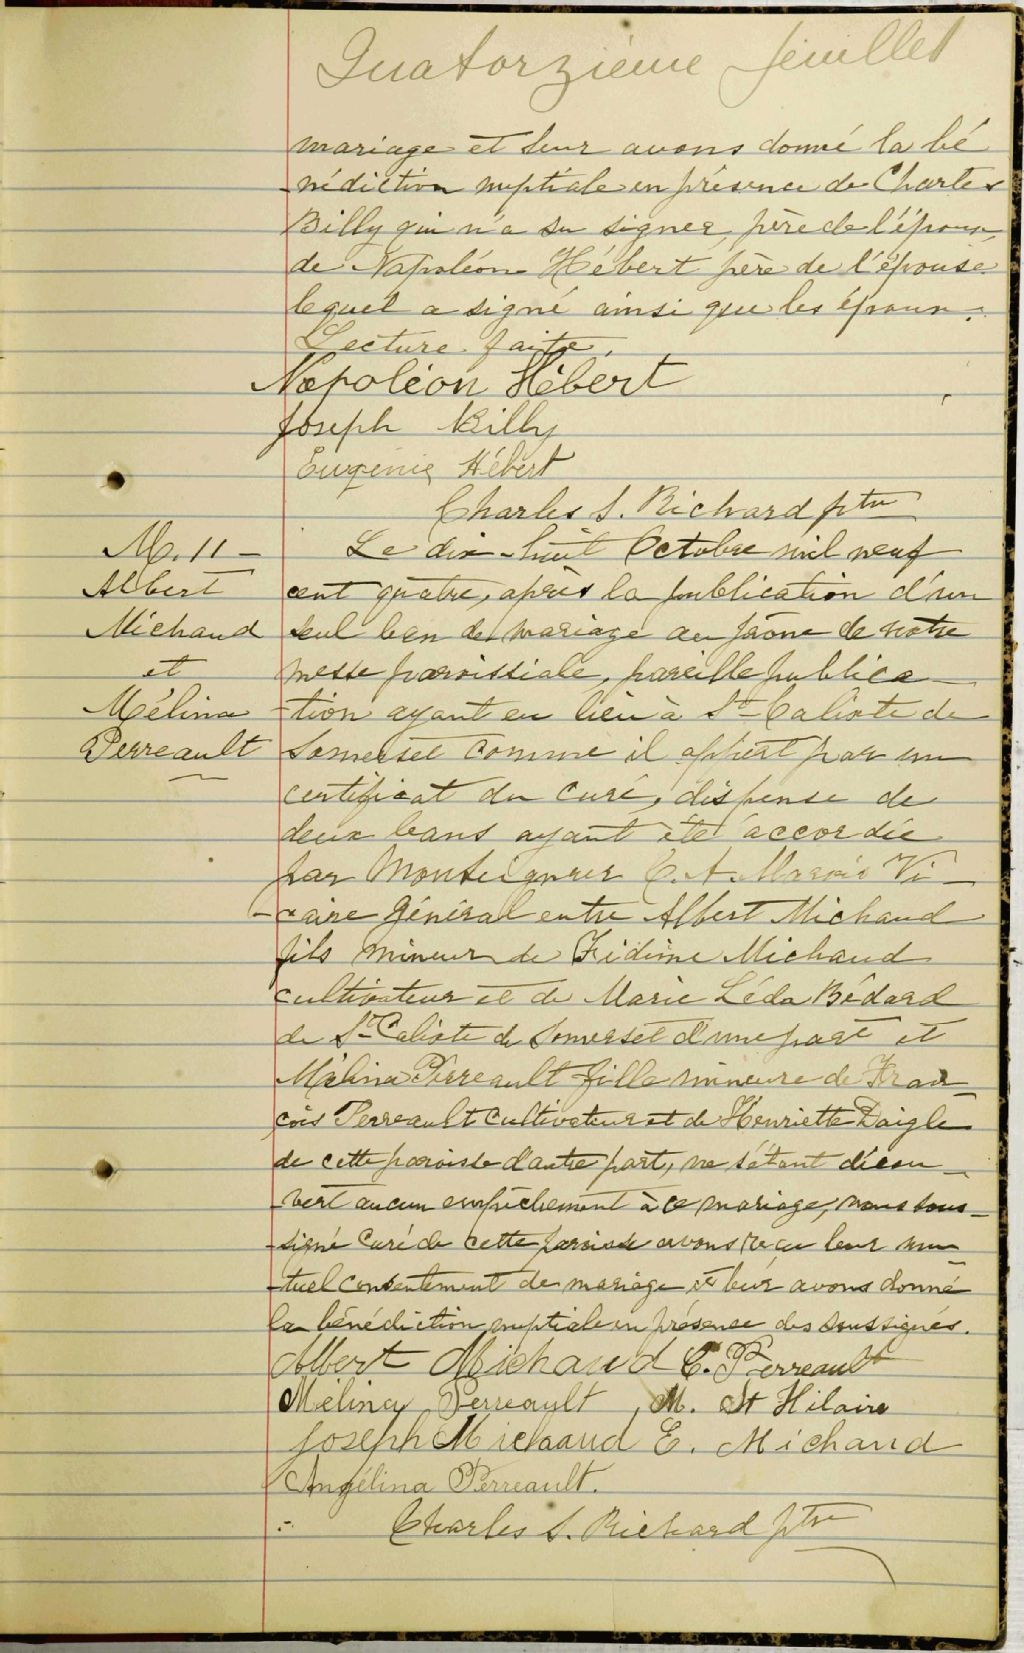 Quatorzième feuillet
mariage et leur avons donné la bé
-nédiction nuptiale en présence de Charles
Billy qui n'a su signer, père de l'époux,
de Napoléon Hébert père de l'épouse
lequel a signé ainsi que les époux.
Lecture faite.
Napoléon Hébert
Joseph Billy
Eugénie Hébert
Charles S. Richard ptre
M. 11 -
Albert
Michaud
et
Mélina
Perreault
Le dix-huit Octobre mil neuf
cent quatre, après la publication d'un
seul ban de mariage au prône de notre
messe paroissiale, pareille publica-
-tion ayant eu lieu à St-Calixte de
Somerset comme il appert par un
certificat du curé, dispense de
deux bans ayant été accordée
par Monseigneur C. A. Marois Vi-
-caire Général entre Albert Michaud
fils mineur de Michaud
cultivateur et de Marie Léda Bédard
de St-Calixte de Somerset d'une part et
Mélina Perreault fille mineure de Fran-
çois Perreault cultivateur et de Henriette Daigle
de cette paroisse d'autre part, ne s'étant décou-
-vert aucun empêchement à ce mariage, nous sous-
-signé curé de cette paroisse avons reçu leur mu-
-tuel consentement de mariage et leur avons donné
la bénédiction nuptiale en présence des soussignés.
Albert Michaud C. Perreault
Mélina Perreault, M. St Hilaire
Joseph Michaud E. Michaud
Angélina Perreault.
Charles S. Richard ptre